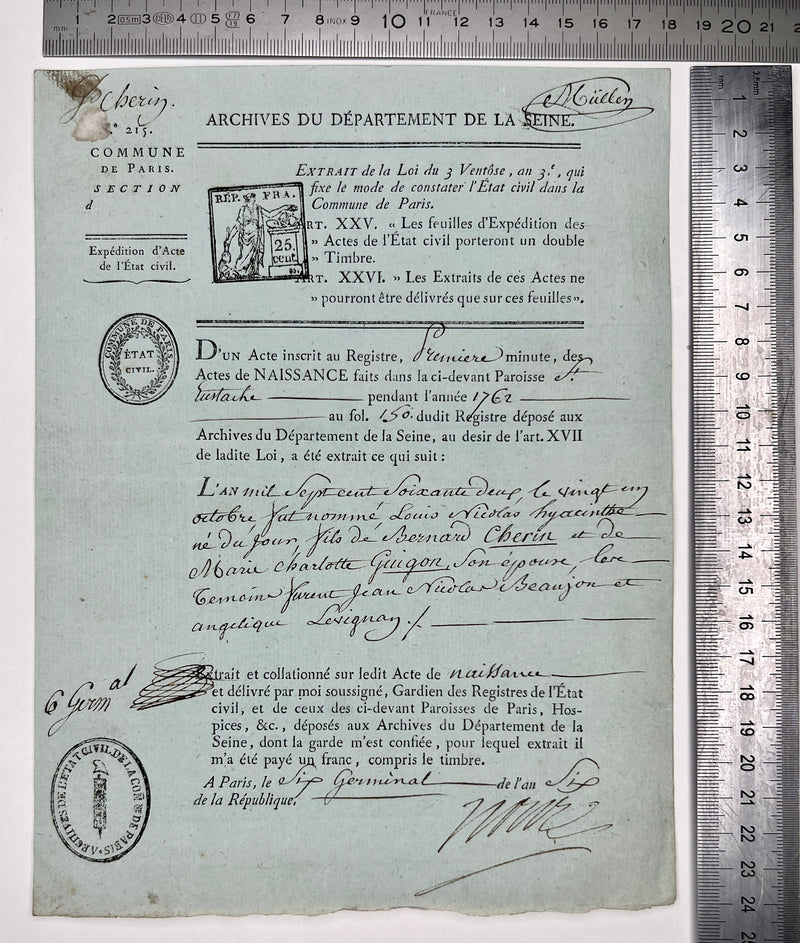 mm 1 2 0.5m 3 4 11 5 6 7 8 INOX 9 10 11 12 13 14 15 16 17 18 19 20 21
FRANCE
mm 1 2 3 4 5 6 7 8 9 10 11 12 13 14 15 16 17 18 19 20 21 22 23 24
Cherin.
N.º 215.
COMMUNE
DE PARIS.
SECTION
d
Expédition d'Acte
de l'État civil.
COMMUNE DE PARIS.
ÉTAT
CIVIL.
Müllen
ARCHIVES DU DÉPARTEMENT DE LA SEINE.
EXTRAIT de la Loi du 3 Ventôse, an 3.e, qui
fixe le mode de constater l'État civil dans la
Commune de Paris.
RÉP. FRA.
25
cent.
ART. XXV. « Les feuilles d'Expédition des
» Actes de l'État civil porteront un double
» Timbre.
ART. XXVI. » Les Extraits de ces Actes ne
» pourront être délivrés que sur ces feuilles ».
D'UN Acte inscrit au Registre, Premiere minute, des
Actes de NAISSANCE faits dans la ci-devant Paroisse St.
Eustache pendant l'année 1762
au fol. 150. dudit Registre déposé aux
Archives du Département de la Seine, au desir de l'art. XVII
de ladite Loi, a été extrait ce qui suit :
L'AN mil Sept cent Soixante deux, le vingt un
octobre fut nommé Louis Nicolas hyacinthe
né du jour, fils de Bernard Cherin et de
Marie Charlotte Guigon, Son épouse, les
Temoins furent Jean Nicolas Beaujon et
angelique Levignan ./.
6 Germal
Extrait et collationné sur ledit Acte de naissance
et délivré par moi soussigné, Gardien des Registres de l'État
civil, et de ceux des ci-devant Paroisses de Paris, Hos-
pices, &c., déposés aux Archives du Département de la
Seine, dont la garde m'est confiée, pour lequel extrait il
m'a été payé un franc, compris le timbre.
A Paris, le Six Germinal de l'an Six
de la République.
ARCHIVES DE L'ETAT CIVIL DE LA COM.E DE PARIS